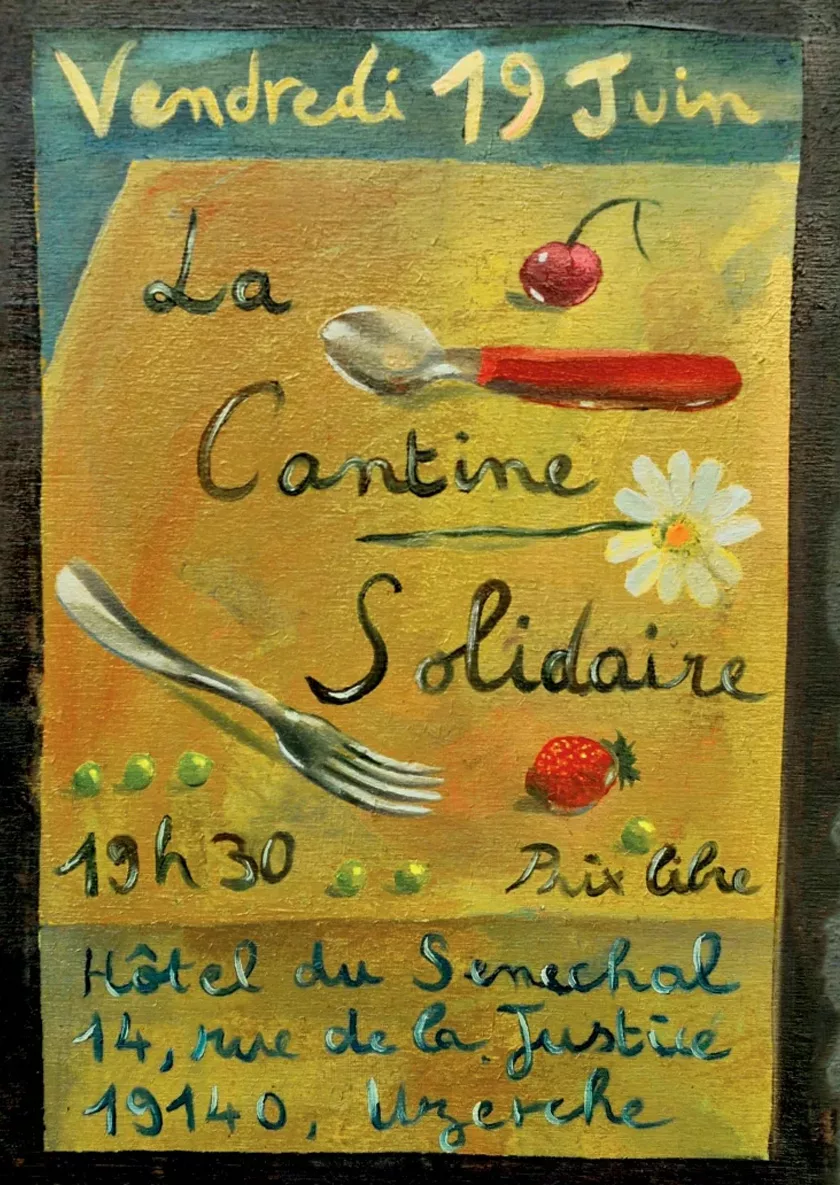 Vendredi 19 Juin
La
Cantine
Solidaire
19h30
Prix libre
Hôtel du Senechal
14, rue de la Justice
19140, Uzerche